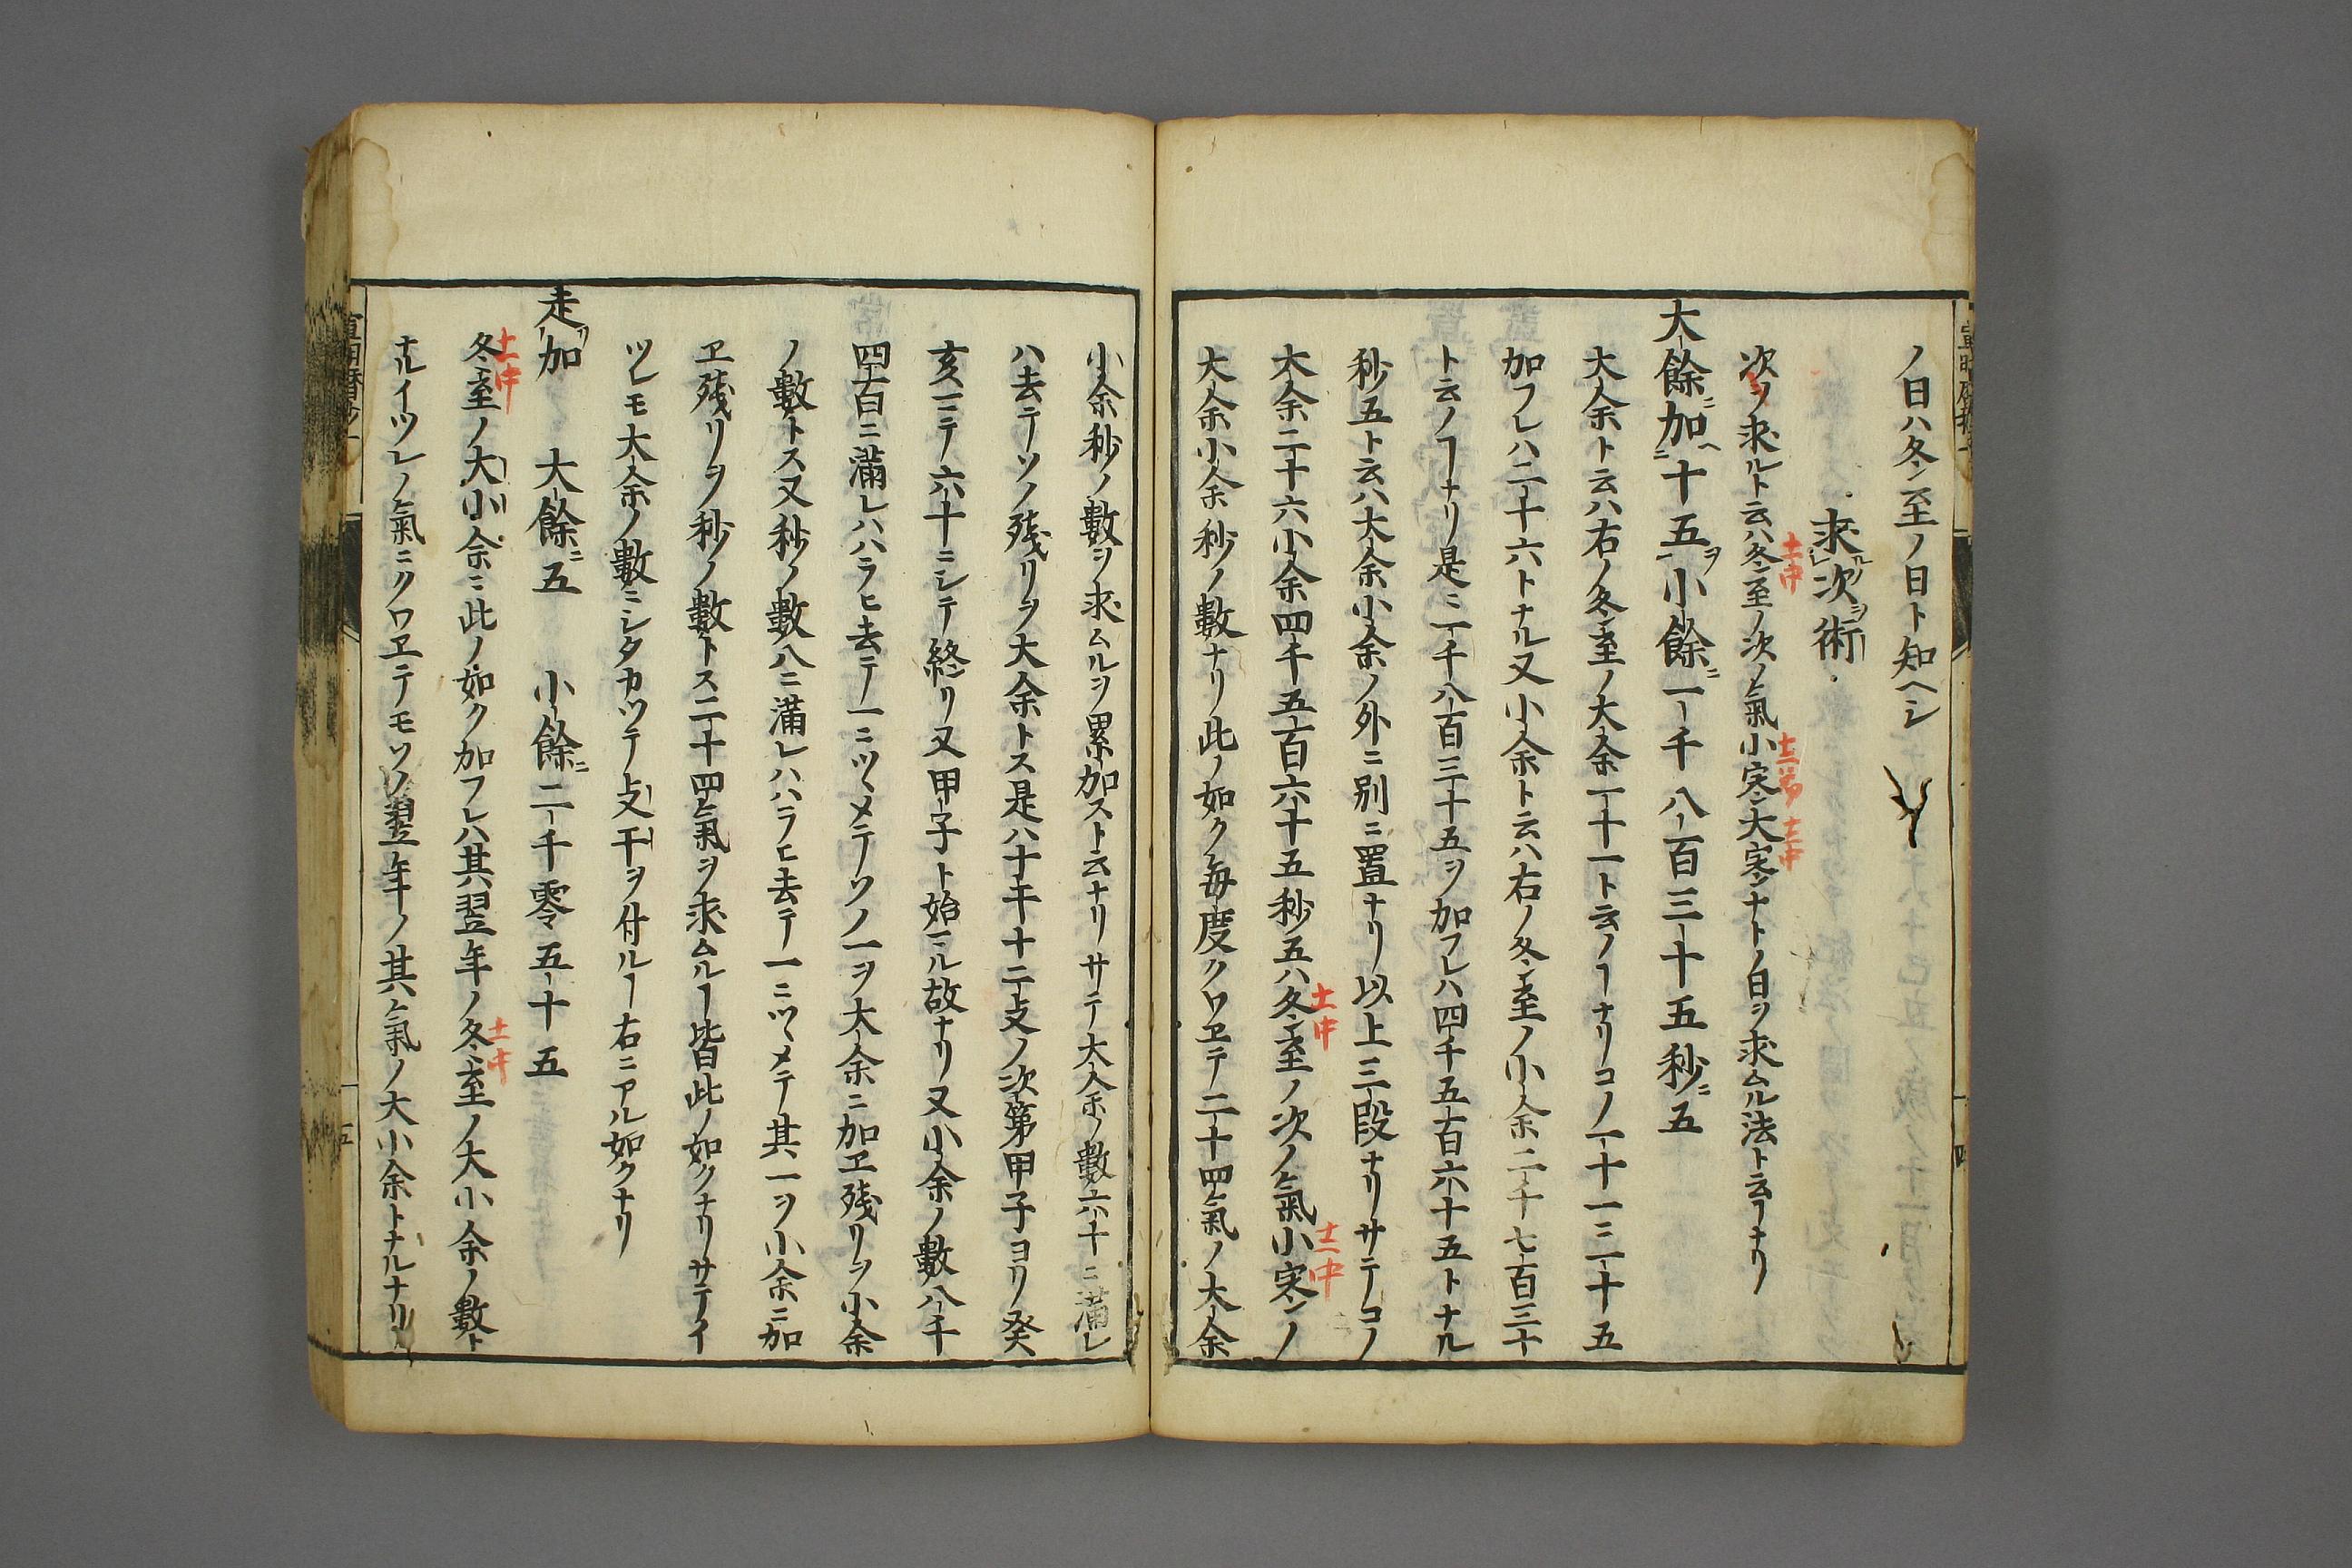 ノ日ハ冬至ノ日ト知ヘシ
求ルレ次ヲ術
次ヲ求ルト云ハ冬至ノ次ノ氣小寒大寒ナトノ日ヲ求ムル法ト云ヿナリ
十一中
十二節
十二中
大餘ニ加ヘ二十五ヲ一小餘ニ一千八百三十五秒ニ五
大余ト云ハ右ノ冬至ノ大余一十一ト云ノヿナリコノ一十一ニ一十五
加フレハ二十六トナル又小余ト云ハ右ノ冬至ノ小余二千七百三十
ト云ノヿナリ是ニ一千八百三十五ヲ加フレハ四千五百六十五トナル
秒五ト云ハ大余小余ノ外ニ別ニ置ナリ以上三段ナリサテコノ
大余二十六小余四千五百六十五秒五ハ冬至ノ次ノ氣小寒ノ
十一中
十二中
大余小余秒ノ數ナリ此ノ如ク毎度クワヱテ二十四氣ノ大余
小余秒ノ數ヲ求ムルヲ累加スト云ナリサテ大余ノ數六十ニ滿レ
ハ去テソノ殘リヲ大余トス是ハ十干十二支ノ次第甲子ヨリ癸
亥ニテ六十ニシテ終リ又甲子ト始ル故ナリ又小余ノ數八千
四百ニ滿レハハラヒ去テ一ニツヽメテソノ一ヲ大余ニ加ヱ殘リヲ小余
ノ數トス又秒ノ數八ニ滿レハハラヒ去テ一ニツヽメテ其一ヲ小余ニ加
ヱ殘リヲ秒ノ數トス二十四氣ヲ求ムルヿ皆此ノ如クナリサテイ
ツレモ大余ノ數ニシタカツテ支干ヲ付ルヿ右ニアル如クナリ
走リ加 大餘ニ五 小餘ニ二千零五十五
冬至ノ大小余ニ此ノ如ク加フレハ其翌年ノ冬至ノ大小余ノ數ト
十一中
十一中
ナルイツレノ氣ニクワヱテモソノ翌年ノ其氣ノ大小余トナルナリ